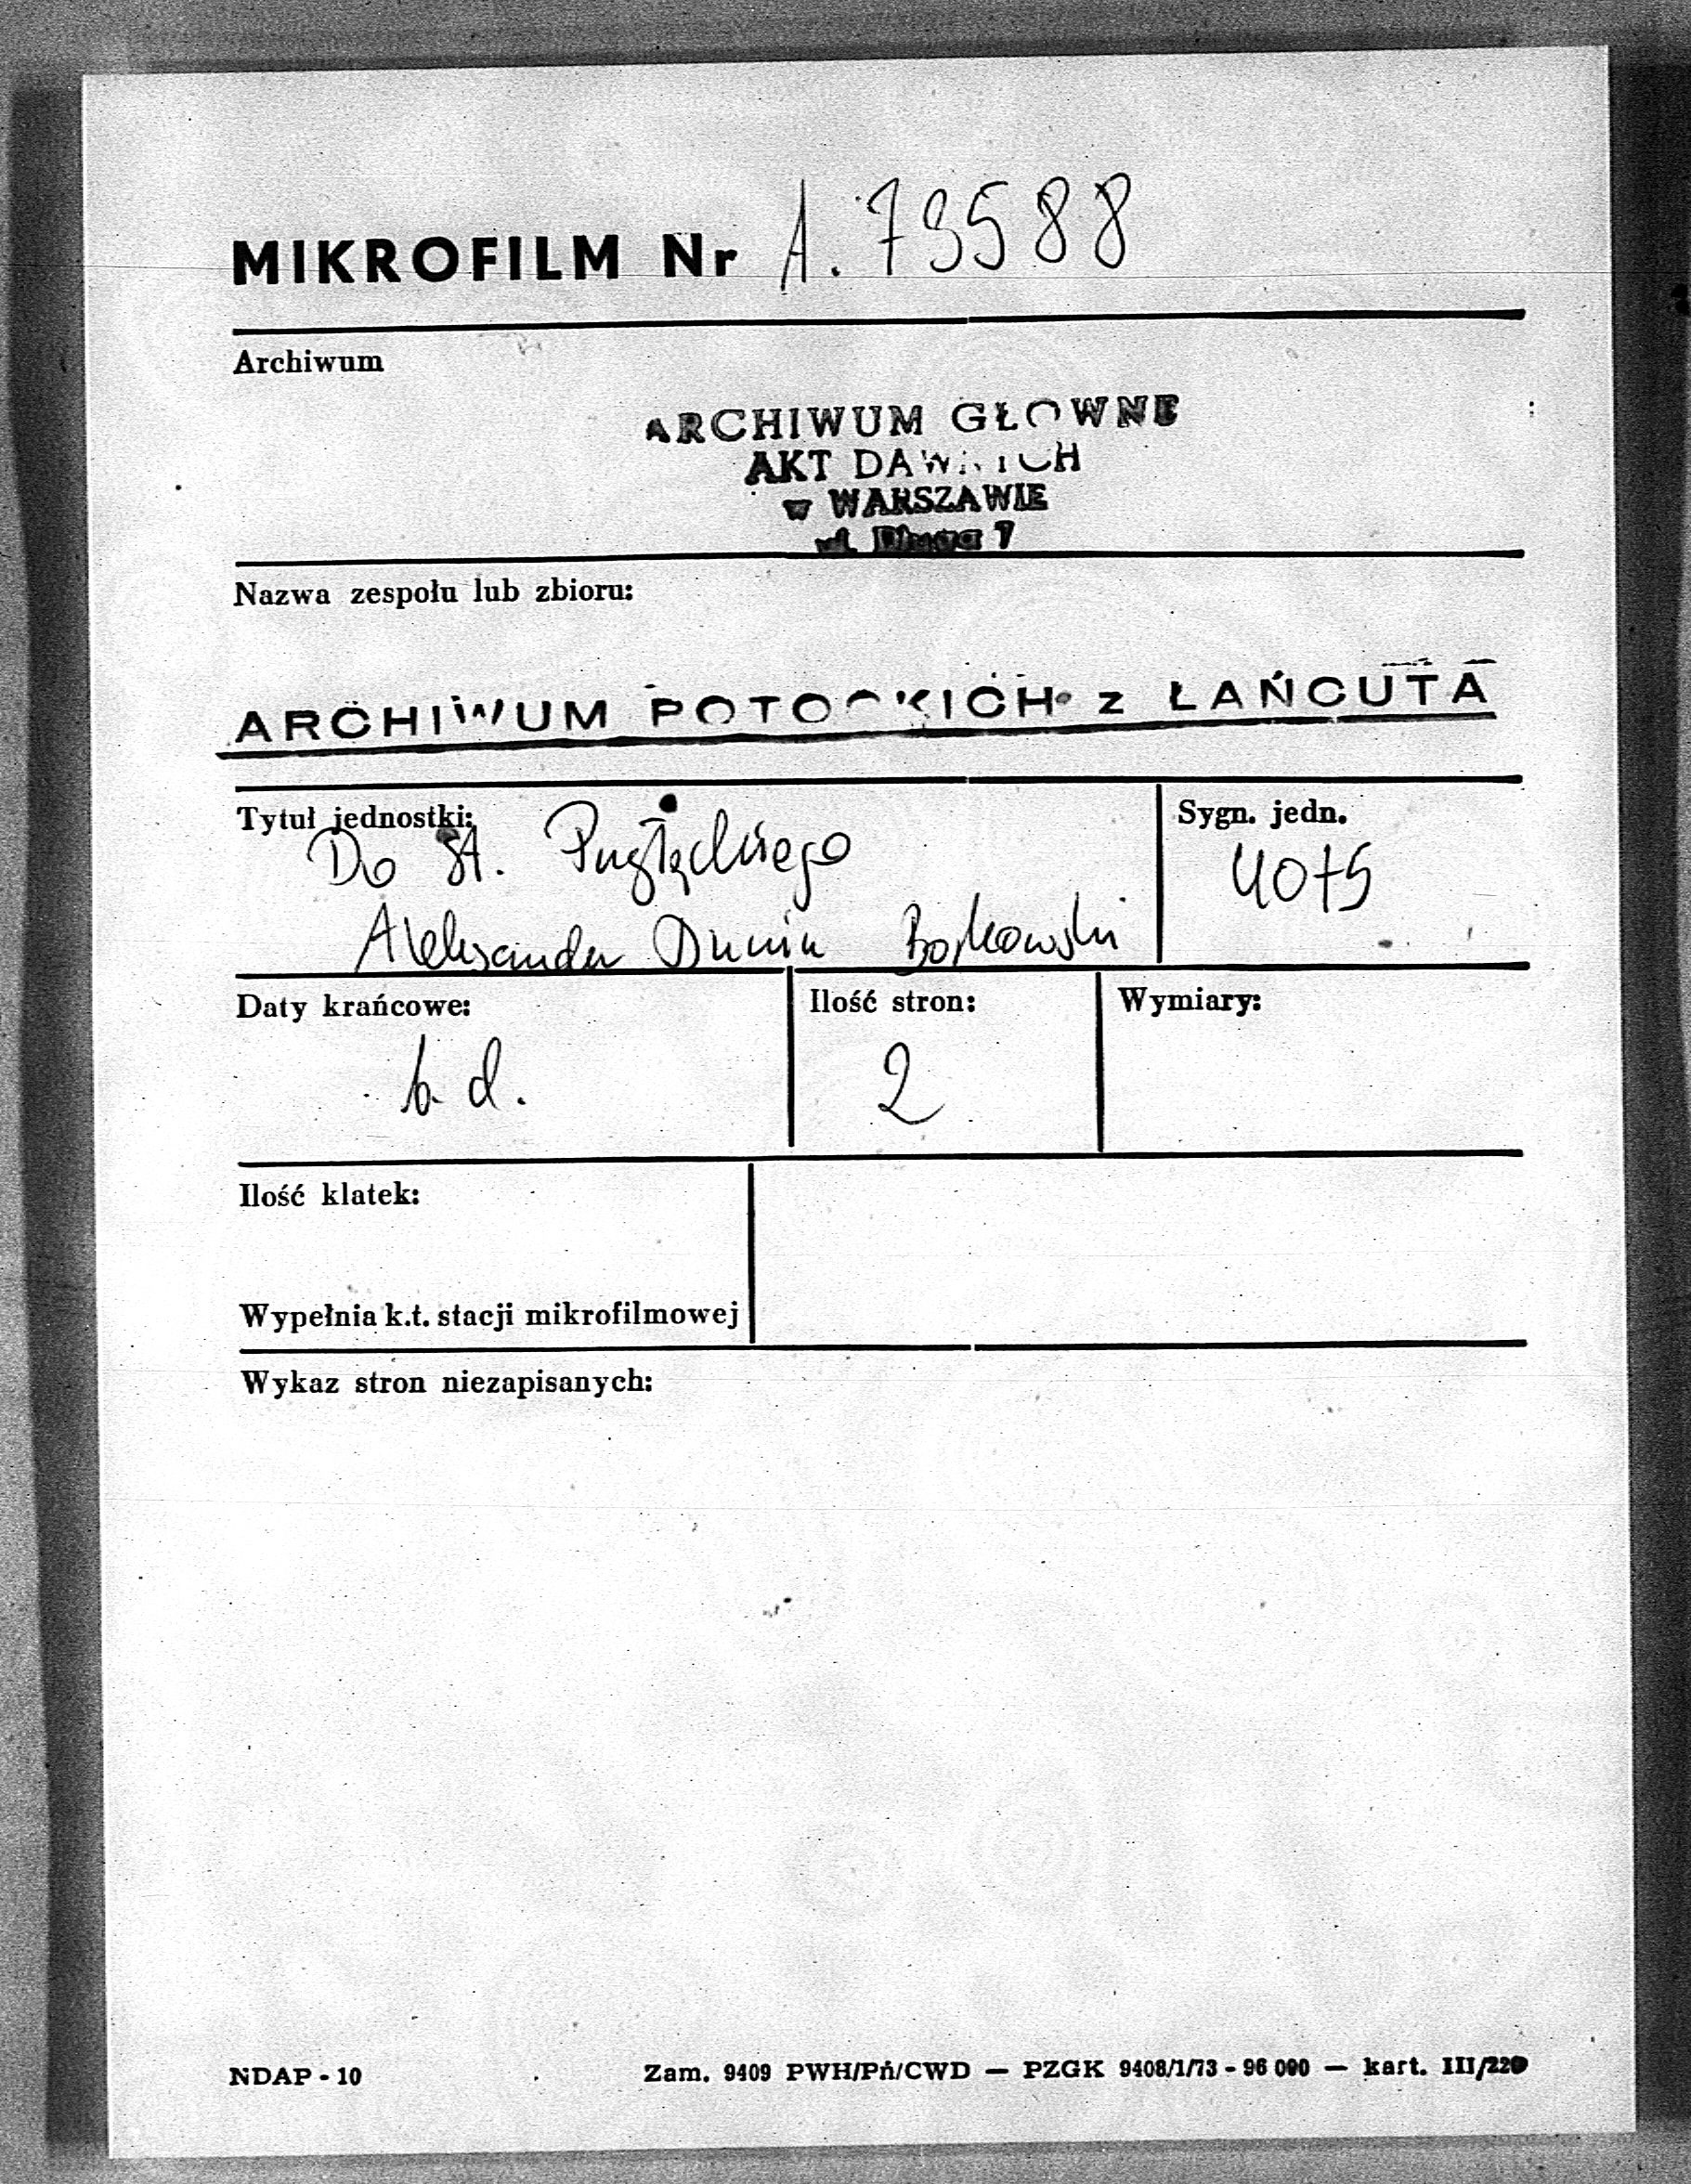 MIKROFILM Nr A. 79588
Archiwum
ARCHIWUM GŁOWNE
AKT DAWNYCH
w WARSZAWIE
ul. Długa 7
Nazwa zespołu lub zbioru:
ARCHIWUM POTOCKICH z ŁAŃCUTA
Tytuł jednostki:
Sygn. jedn.
Do St.
4075
Aleksander Dunin Borkowski
Daty krańcowe:
Ilość stron:
Wymiary:
b. d.
2
Ilość klatek:
Wypełnia k.t. stacji mikrofilmowej
Wykaz stron niezapisanych:
NDAP - 10
Zam. 9409 PWH/Pń/CWD — PZGK 9408/1/73 - 96 000 — kart. III/220